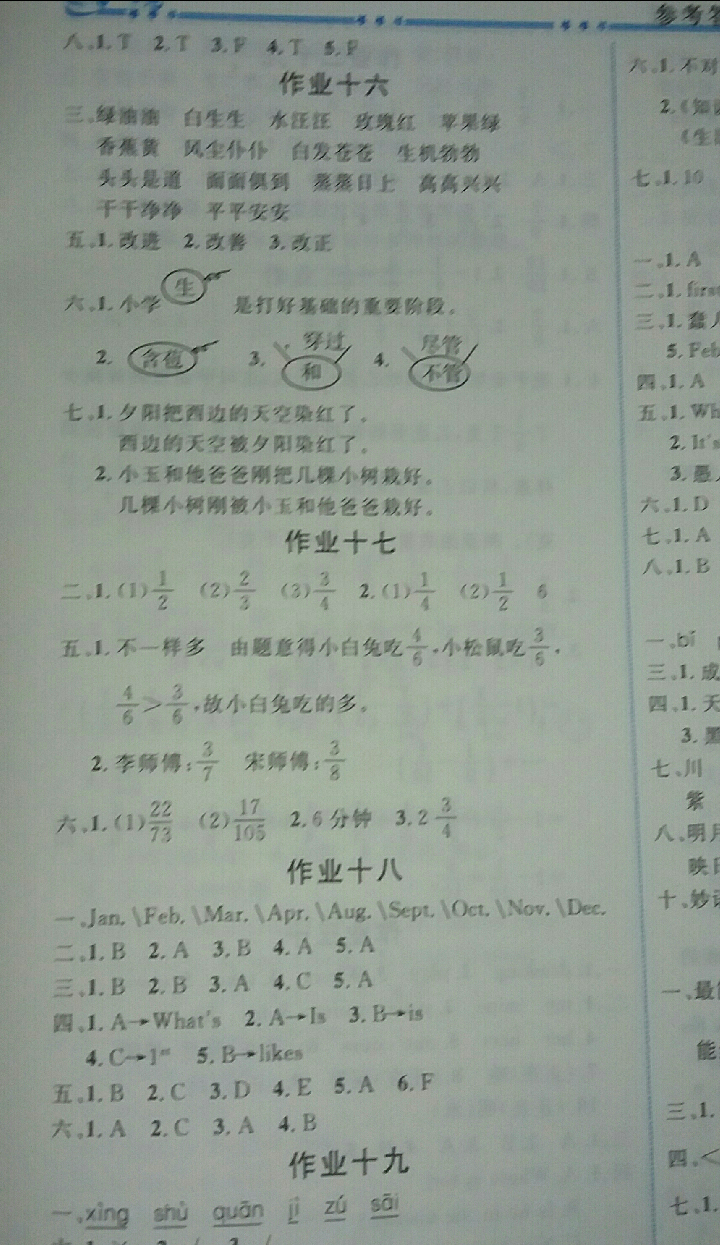 参考答
八、1. T 2. T 3. F 4. T 5. F
作业十六
三、绿油油 白生生 水汪汪 玫瑰红 苹果绿
香蕉黄 风尘仆仆 白发苍苍 生机勃勃
头头是道 面面俱到 蒸蒸日上 高高兴兴
干干净净 平平安安
五、1. 改进 2. 改善 3. 改正
六、1. 小学 生 是打好基础的重要阶段。
2. 含苞 3. 穿过 和 4. 尽管 不管
七、1. 夕阳把西边的天空染红了。
西边的天空被夕阳染红了。
2. 小玉和他爸爸刚把几棵小树栽好。
几棵小树刚被小玉和他爸爸栽好。
作业十七
二、1. (1) 1/2 (2) 2/3 (3) 3/4 2. (1) 1/4 (2) 1/2 6
五、1. 不一样多 由题意得小白兔吃 4/6 ,小松鼠吃 3/6 ,
4/6 > 3/6 ,故小白兔吃的多。
2. 李师傅: 3/7 宋师傅: 3/8
六、1. (1) 22/73 (2) 17/105 2. 6 分钟 3. 2 3/4
作业十八
一、Jan. \Feb. \Mar. \Apr. \Aug. \Sept. \Oct. \Nov. \Dec.
二、1. B 2. A 3. B 4. A 5. A
三、1. B 2. B 3. A 4. C 5. A
四、1. A→What's 2. A→Is 3. B→is
4. C→1st 5. B→likes
五、1. B 2. C 3. D 4. E 5. A 6. F
六、1. A 2. C 3. A 4. B
作业十九
一、xìng shù quān jì zú sāi
六、1. 不对
2.《知
《生
七、1. 10
一、1. A
二、1. first
三、1. 蠢人
5. Feb
四、1. A
五、1. Wh
2. It's
3. 愚人
六、1. D
七、1. A
八、1. B
一、bǐ
三、1. 成
四、1. 天
3. 黑
七、川
紫
八、明月
映日
十、妙语
一、最
能
三、1.
四、<
七、1.